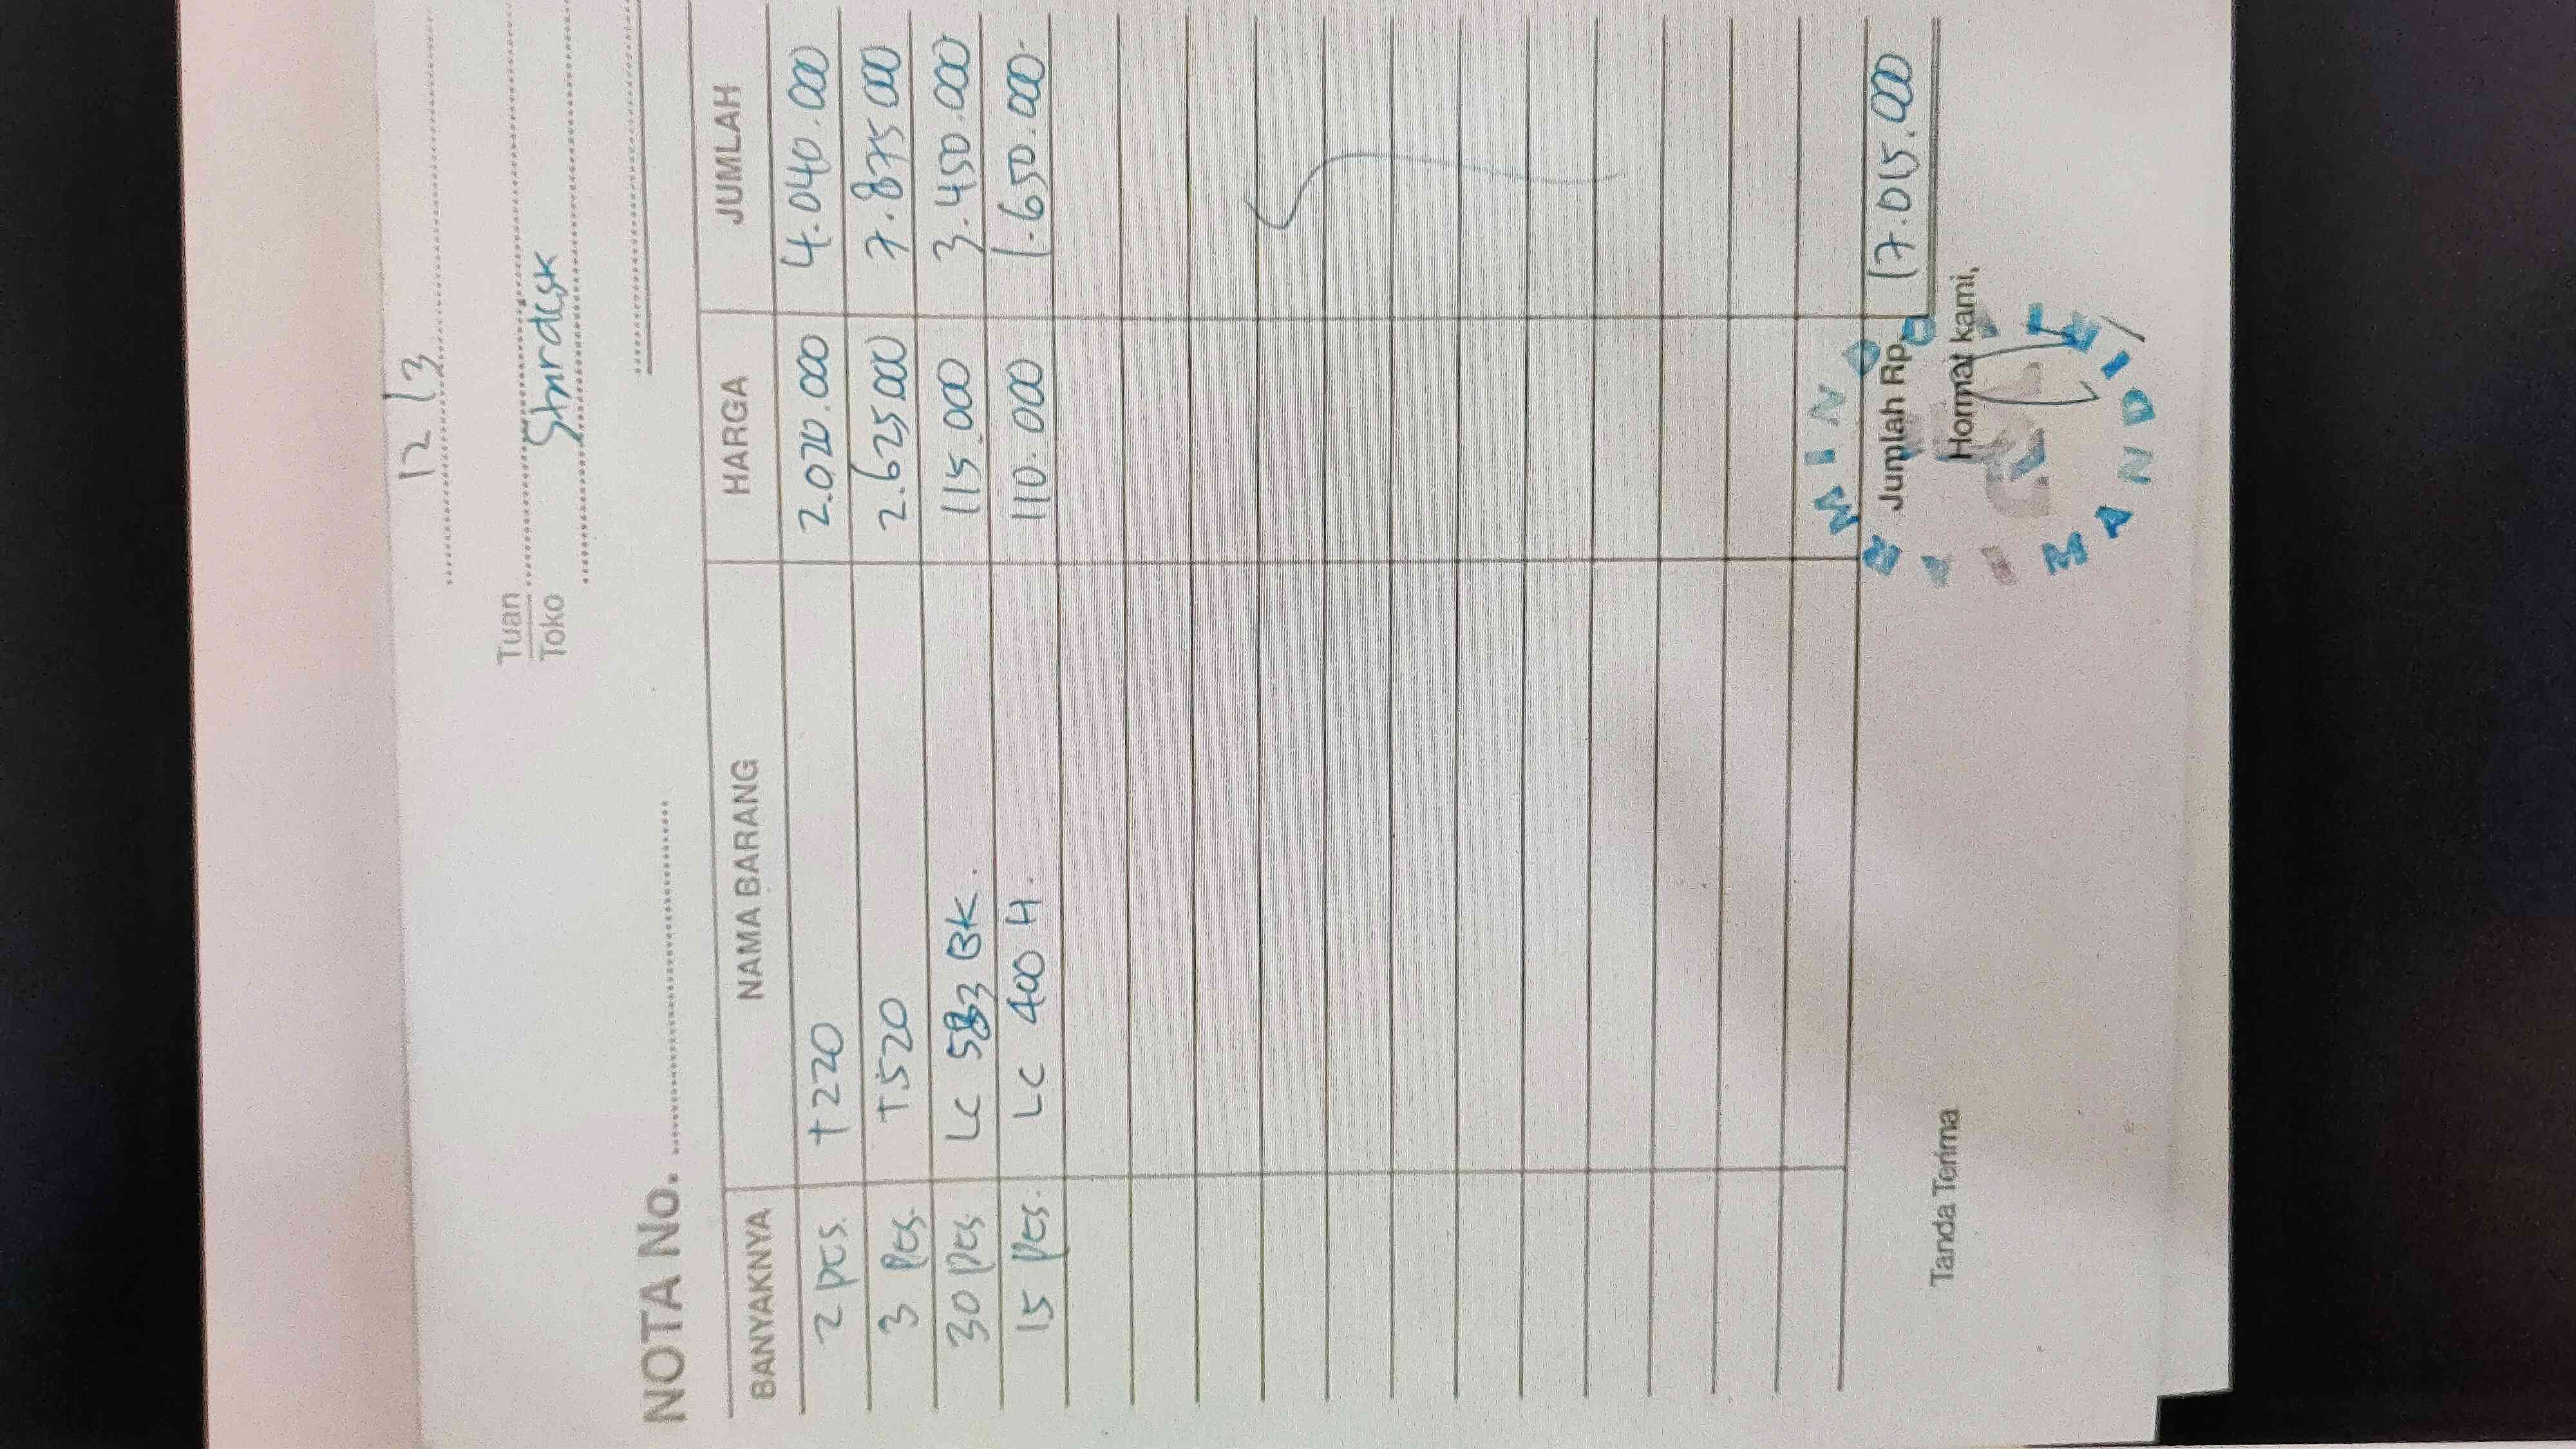 12/3
Tuan
Toko Smrdesk
NOTA No.
BANYAKNYA NAMA BARANG HARGA JUMLAH
2 pcs. T220 2.020.000 4.040.000
3 pcs. T520 2.625.000 7.875.000
30 pcs. LC 583 BK. 115.000 3.450.000
15 pcs. LC 400 H. 110.000 1.650.000
Jumlah Rp. 17.015.000
Tanda Terima Hormat kami,
MANDIRI